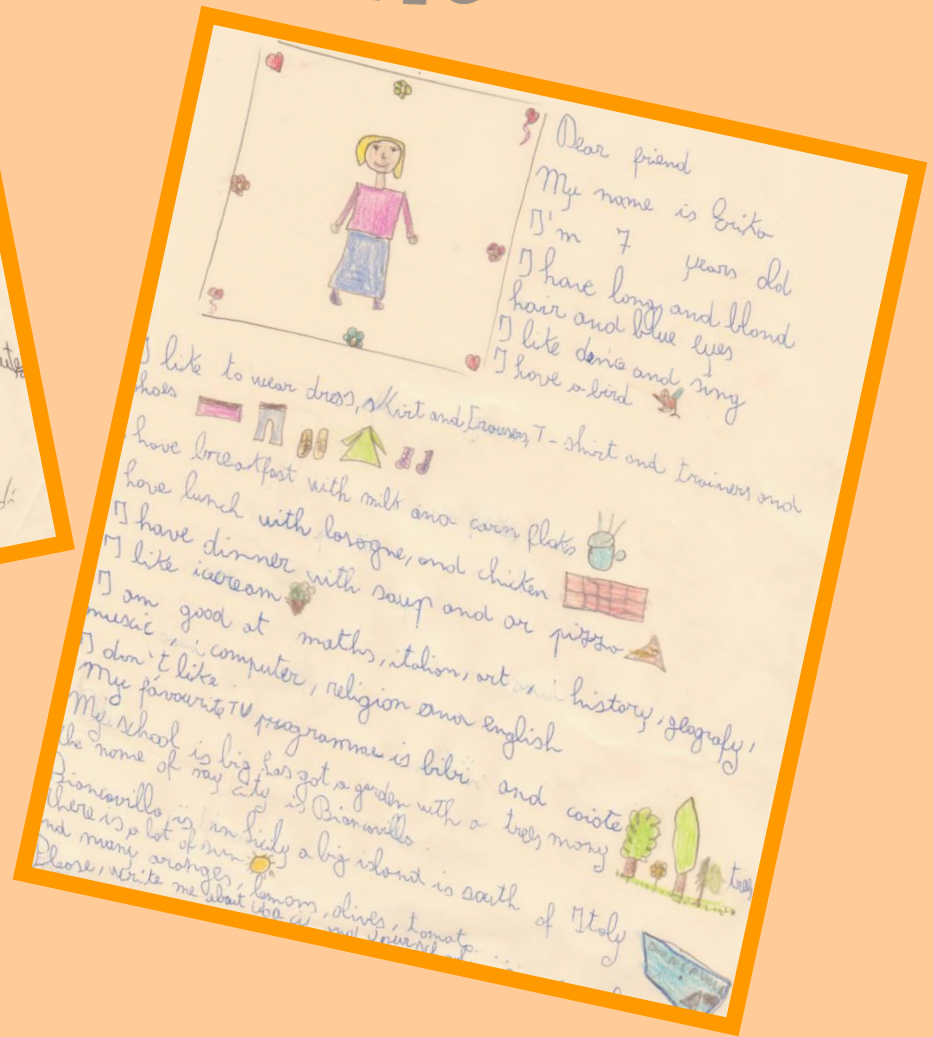 Dear friend
My name is Erika
I'm 7 years old
I have long and blond
hair and blue eyes
I like and sing
I have a bird
I like to wear dress, skirt and trousers, T-shirt and trainers and
shoes
have breakfast with milk and corn flaks
have lunch with lasagne, and chicken
I have dinner with soup and or pizza
I like icecream
I am good at maths, italian, art history, geografy,
music, computer, religion and english
I don't like
My favourite TV programme is bibi and coiote
My school is big, has got a garden with a trees many trees
the name of my city is Biancavilla
Biancavilla is in Sicily a big island is south of Italy
there is a lot of sun
and many oranges, lemons, olives, tomato
Please, write me about